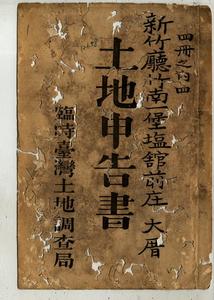 四冊之內四
新竹廳竹南一堡塩館前庄 大厝
土地申告書
臨時臺灣土地調查局